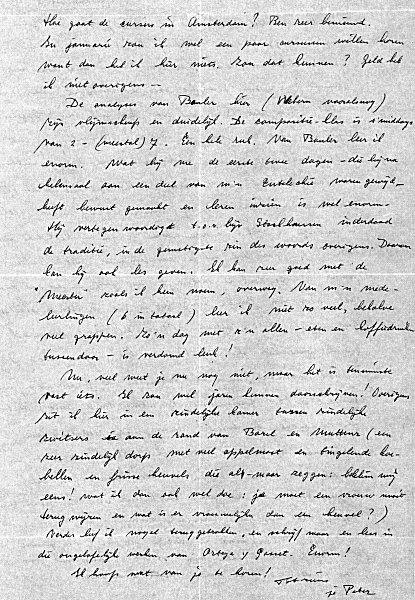 Hoe gaat de cursus in Amsterdam? Ben zeer benieuwd.
In januari zou ik wel een paar cursussen willen horen
want dan heb ik hier niets. Zou dat kunnen? Geld heb
ik niet overigens —
De analyses van Boulez hier (Webern vooralsnog)
zijn vlijmscherp en duidelijk. De compositie-klas is 's middags
van 2 - (meestal) 7. Een hele ruk. Van Boulez leer ik
enorm. Wat hij me de eerste twee dagen - die bijna
helemaal aan een deel van m'n Entelechie waren gewijd,
heeft bewust gemaakt en leren inzien is wel enorm.
Hij vertegenwoordigt t.o.v. bijv Stockhausen inderdaad
de traditie, in de gunstigste zin des woords overigens. Daarom
kan hij ook les geven. Ik kan zeer goed met de
"Meester" zoals ik hem noem, overweg. Van m'n mede-
leerlingen (6 in totaal) leer ik niet zo veel, behalve
veel grappen. Zo'n dag met z'n allen - eten en koffiedrinken
tussendoor - is verdomd leuk!
Nu, veel weet je nu nog niet, maar het is tenminste
vast iets. Ik zou wel jaren kunnen doorschrijven! Overigens
zit ik hier in een zindelijke kamer tussen zindelijke
zwitsers aan de rand van Basel en Muttenz (een
zeer zindelijk dorp met veel appelmoest en tingelende koe-
bellen en frisse heuvels die al-maar zeggen: beklim mij
eens! wat ik dan ook wel doe: je moet een vrouw nooit
terug wijzen en wat is er vrouwelijker dan een heuvel?)
Verder leef ik nogal teruggetrokken, en schrijf maar en lees in
die ongelofelijke werken van Ortega y Gasset. Enorm!
Ik hoop wat van je te horen!
je Peter